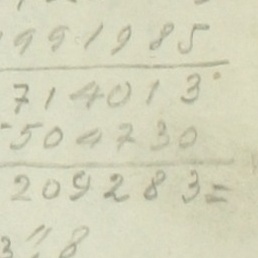 991985
714013
-504730
209283=
3"8